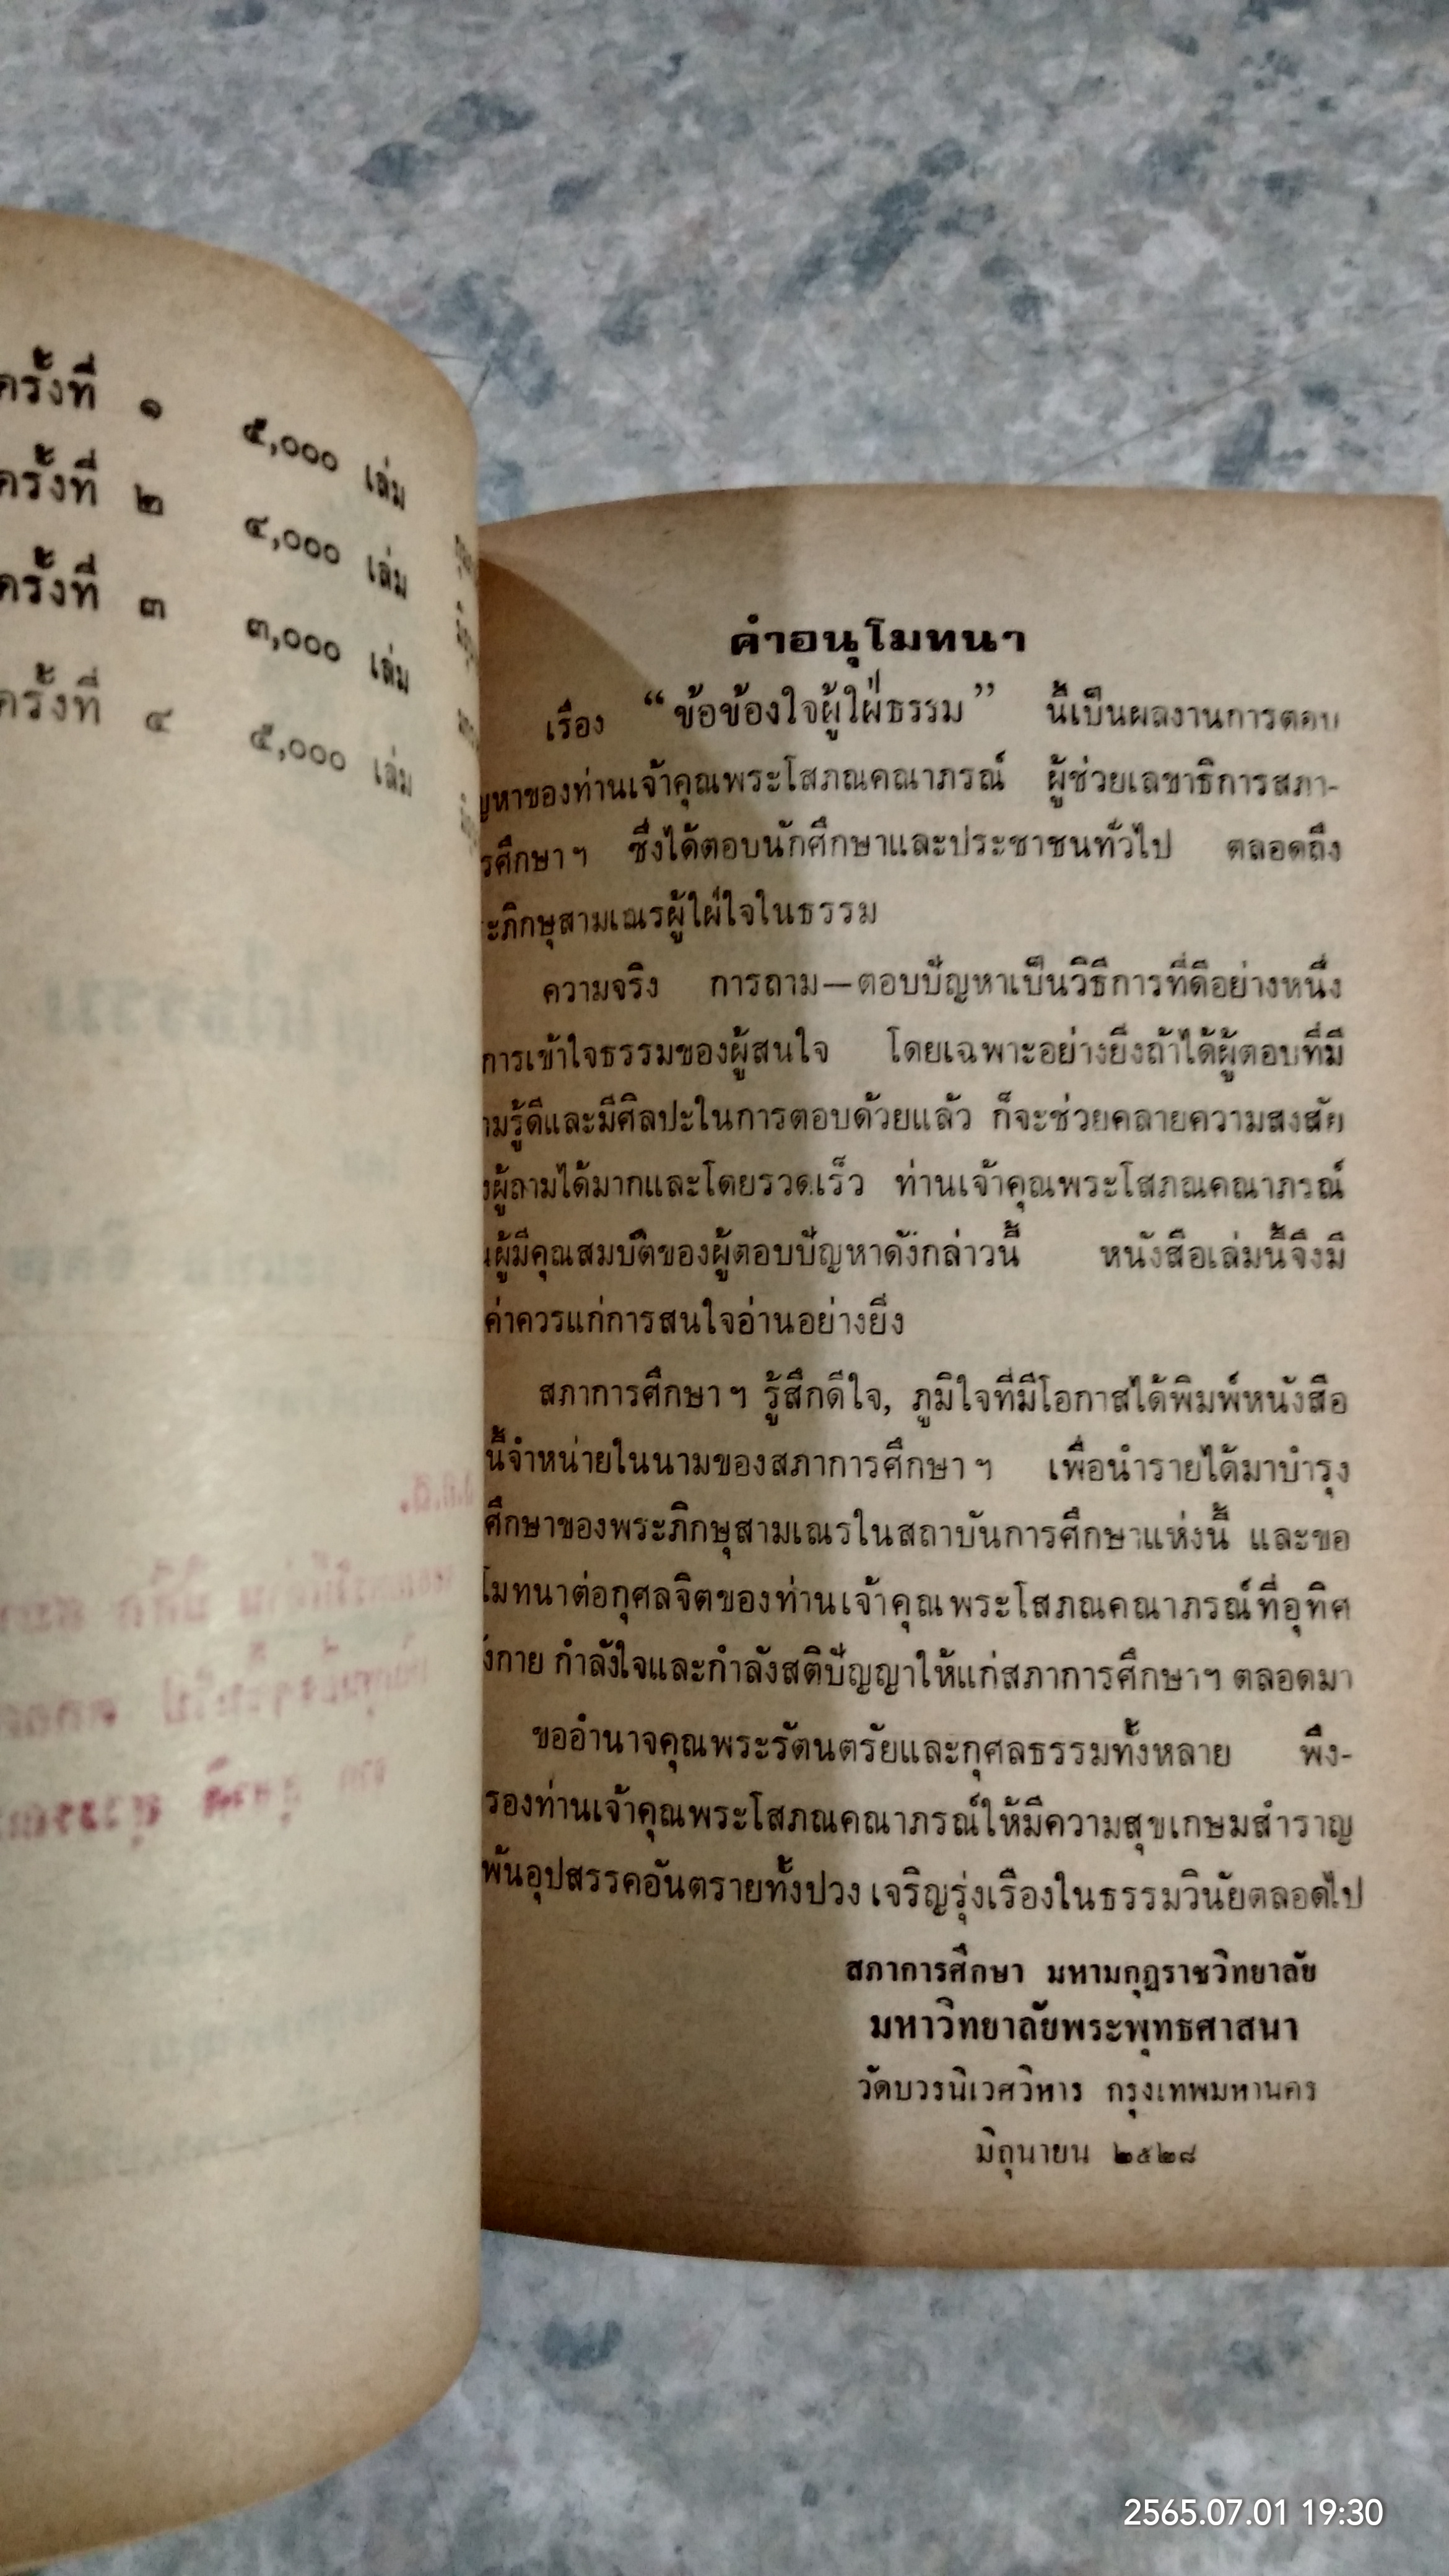 ครั้งที่ ๑ ๕,๐๐๐ เล่ม
ครั้งที่ ๒ ๔,๐๐๐ เล่ม
ครั้งที่ ๓ ๓,๐๐๐ เล่ม
ครั้งที่ ๔ ๕,๐๐๐ เล่ม
คำอนุโมทนา
เรื่อง “ข้อข้องใจผู้ใฝ่ธรรม” นี้เป็นผลงานการตอบ
ญหาของท่านเจ้าคุณพระโสภณคณาภรณ์ ผู้ช่วยเลขาธิการสภา-
รศึกษาฯ ซึ่งได้ตอบนักศึกษาและประชาชนทั่วไป ตลอดถึง
ะภิกษุสามเณรผู้ใฝ่ใจในธรรม
ความจริง การถาม—ตอบปัญหาเป็นวิธีการที่ดีอย่างหนึ่ง
การเข้าใจธรรมของผู้สนใจ โดยเฉพาะอย่างยิ่งถ้าได้ผู้ตอบที่มี
ามรู้ดีและมีศิลปะในการตอบด้วยแล้ว ก็จะช่วยคลายความสงสัย
งผู้ถามได้มากและโดยรวดเร็ว ท่านเจ้าคุณพระโสภณคณาภรณ์
นผู้มีคุณสมบัติของผู้ตอบปัญหาดังกล่าวนี้ หนังสือเล่มนี้จึงมี
ค่าควรแก่การสนใจอ่านอย่างยิ่ง
สภาการศึกษาฯ รู้สึกดีใจ, ภูมิใจที่มีโอกาสได้พิมพ์หนังสือ
นี้จำหน่ายในนามของสภาการศึกษาฯ เพื่อนำรายได้มาบำรุง
ศึกษาของพระภิกษุสามเณรในสถาบันการศึกษาแห่งนี้ และขอ
โมทนาต่อกุศลจิตของท่านเจ้าคุณพระโสภณคณาภรณ์ที่อุทิศ
ังกาย กำลังใจและกำลังสติปัญญาให้แก่สภาการศึกษาฯ ตลอดมา
ขออำนาจคุณพระรัตนตรัยและกุศลธรรมทั้งหลาย พึง-
รองท่านเจ้าคุณพระโสภณคณาภรณ์ให้มีความสุขเกษมสำราญ
พ้นอุปสรรคอันตรายทั้งปวง เจริญรุ่งเรืองในธรรมวินัยตลอดไป
สภาการศึกษา มหามกุฏราชวิทยาลัย
มหาวิทยาลัยพระพุทธศาสนา
วัดบวรนิเวศวิหาร กรุงเทพมหานคร
มิถุนายน ๒๕๒๘
2565.07.01 19:30